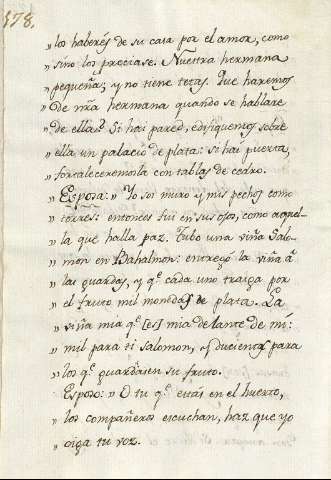 578,
" los haberés de su casa por el amor, como
" sino los preciase. Nuestra hermana
" pequeña, y no tiene tetas. Que haremos
" de nr̃a hermana quando se hablare
" de ella? Si hai pared, edifiquemos sobre
" ella un palacio de plata: si hai puerta,
" fortalecerémosla con tablas de cedro.
" Esposa: " Yo soi muro y mis pechos como
" torres: entonces fui en sus ojos, como aquel-
" la que halla paz. Tubo una viña Salo-
" mon en Bahalmon: entregó la viña á
" las guardas, y q.e cada uno traiga por
" el fruto mil monedas de plata. La
" viña mia q.e [es] mia delante de mí:
" mil para ti Salomon, y ducientos para
" los q.e guardasen su fruto.
Esposo: " O tu q.e estás en el huerto,
" los compañeros escuchan, haz que yo
" oiga tu voz.